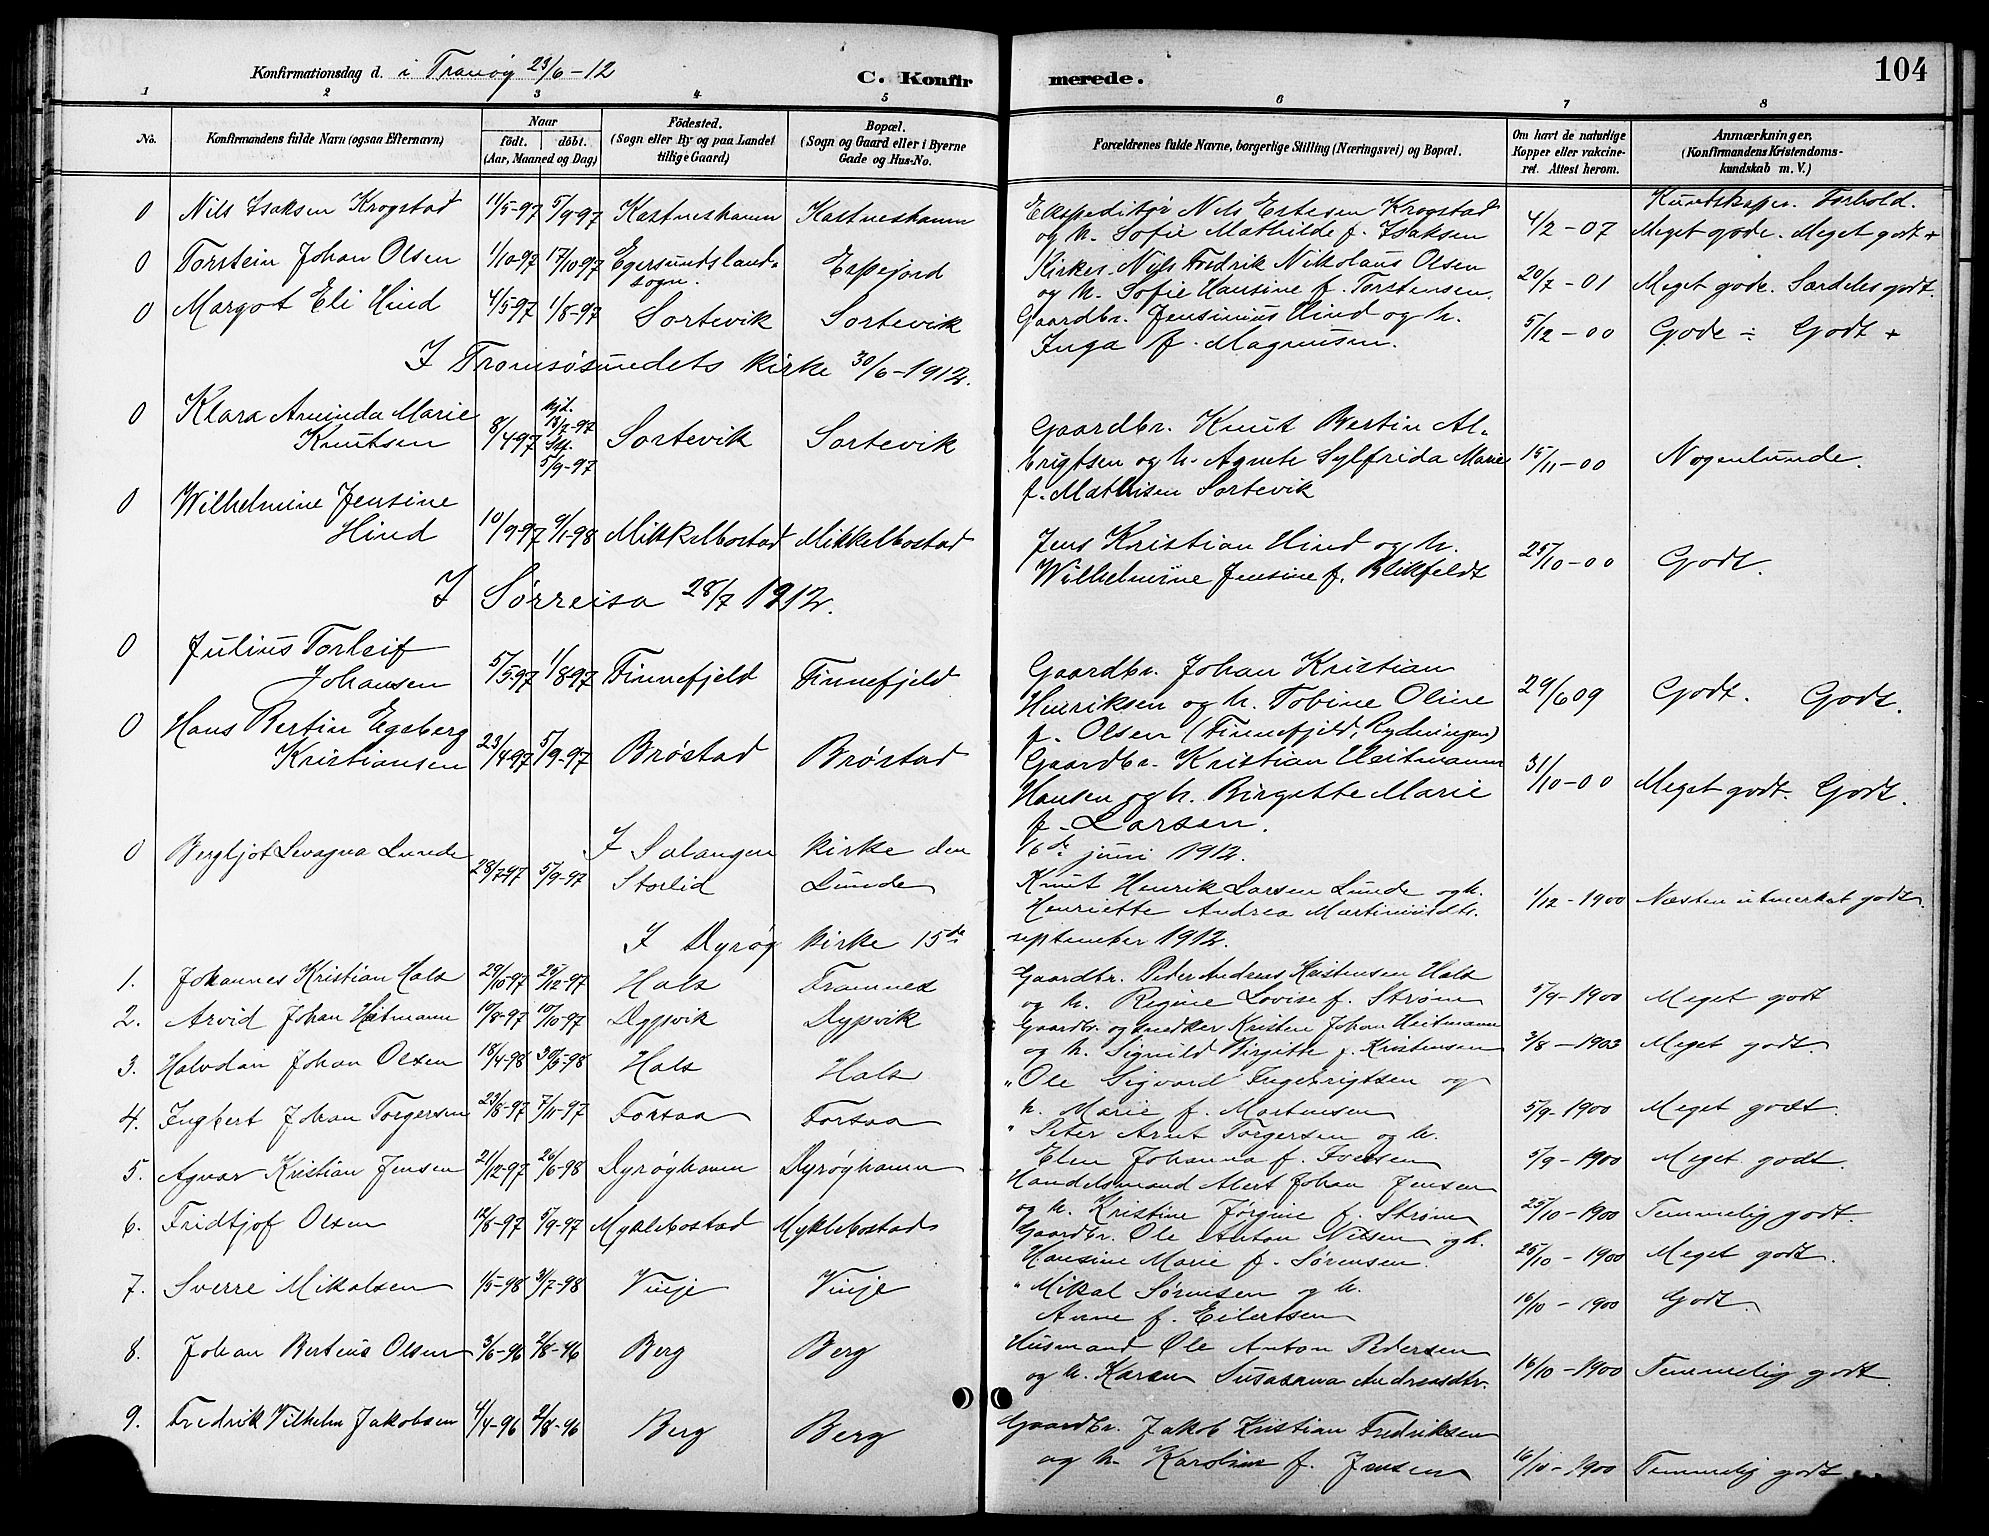 Konfirmationsdag d. i Tranøy 23/6-12 C. Konfirmerede. 104
1 2 3 4 5 6 7 8
No. Konfirmandens fulde Navn (ogsaa Efternavn) Naar født. døbt. (Aar, Maaned og Dag) Fødested. (Sogn eller By og paa Landet tillige Gaard) Bopæl. (Sogn og Gaard eller i Byerne Gade og Hus-No. Forældrenes fulde Navne, borgerlige Stilling (Næringsvei) og Bopæl. Om havt de naturlige Kopper eller vakcineret. Attest herom. Anmærkninger. (Konfirmandens Kristendomskundskab m. V.)
Kundskaper. Forhold.
0 Nils Isaksen Krogstad 11/5-97 5/9-97 Kastneshamn Kastneshamn Ekspeditør Nils Ertsen Krogstad
og h. Sofie Mathilde f. Isaksen 4/2-07 Meget gode. Meget godt +
0 Torstein Johan Olsen 1/10-97 17/10-97 Egersundsland-
sogn. Espejord Kirkes. Nils Fredrik Nikolaus Olsen
og h. Sofie Hansine f. Torstensen. 20/7-01 Meget gode. Særdeles godt.
0 Margot Eli Hind 4/5-97 1/8-97 Sortevik Sortevik Gaardbr. Jensinius Hind og h.
Inga f. Magnusen. 5/12-00 Gode ÷ Godt +
I Tromsøsundets kirke 30/6-1912.
0 Klara Aminda Marie
Knutsen 8/4-97 hjd. 18/7-97
Stf. 5/9-97 Sortevik Sortevik Gaardbr. Knut Bertin Al-
brigtsen og h. Agnete Sylfrida Marie
f. Mathisen Sortevik 15/11-00 Nogenlunde.
0 Wilhelmine Jensine
Hind 10/9-97 9/1-98 Mikkelbostad Mikkelbostad Jens Kristian Hind og h.
Wilhelmine Jensine f. Blikfeldt 25/10-00 Godt.
I Sørreisa 28/7 1912.
0 Julius Torleif
Johansen 5/5-97 1/8-97 Finnefjeld Finnefjeld. Gaardbr. Johan Kristian
Henriksen og h. Tobine Oline
f. Olsen (Finnefjeld, Rydningen) 29/6 09 Godt. Godt.
0 Hans Bertin Egeberg
Kristiansen 23/4-97 5/9-97 Brøstad Brøstad Gaardbr. Kristian Heitmann
Hansen og h. Birgitte Marie
f. Larsen. 31/10-00 Meget godt. Godt.
I Salangen kirke den 16de juni 1912.
0 Bergljot Sevagna Lunde 28/7-97 5/9-97 Storlid Lunde Knut Henrik Larsen Lunde og h.
Henriette Andrea Martinusdtr. 1/12-1900 Næsten utmerket godt.
I Dyrøy kirke 15de september 1912.
1. Johannes Kristian Hals 29/10-97 25/12-97 Hals Framnes Gaardbr. Peder Andreas Kristensen Hals
og h. Regine Lovise f. Strøm 5/9-1900 Meget godt
2. Arvid Johan Heitmann 10/8-97 10/10-97 Dypvik Dypvik Gaardbr. og snedker Kristen Johan Heitmann
og h. Signild Birgitte f. Kristensen 3/8-1903 Meget godt.
3. Halvdan Johan Olsen 18/4-98 30/5-98 Hals Hals " Ole Sigvard Ingebrigtsen og
h. Marie f. Mortensen 5/9-1900 Meget godt.
4. Ingbert Johan Torgersen 23/8-97 7/11-97 Forsaa Forsaa " Peter Arnt Torgersen og h.
Elen Johanna f. Iversen 5/9-1900 Meget godt.
5. Agnar Kristian Jensen 21/12-97 26/6-98 Dyrøyhamn Dyrøyhamn Handelsmand Albert Johan Jensen
og h. Kristine Jørgine f. Strøm 25/10-1900 Temmelig godt.
6. Fridtjof Olsen 12/8-97 5/9-97 Myklebostad Myklebostad Gaardbr. Ole Anton Nilsen og h.
Hansine Marie f. Sørensen. 25/10-1900 Meget godt.
7. Sverre Mikalsen 1/5-98 3/7-98 Vinje Vinje " Mikal Sørensen og h.
Anne f. Eilertsen 16/10-1900 Godt.
8. Johan Berteus Olsen 3/6-96 2/8-96 Berg Berg Husmand Ole Anton Pedersen
og h. Karen Susanna Andreasdtr. 16/10-1900 Temmelig godt.
9. Fredrik Vilhelm Jakobsen 4/4-96 2/8-96 Berg Berg Gaardbr. Jakob Kristian Fredriksen
og h. Karoline f. Jensen 16/10-1900 Temmelig godt